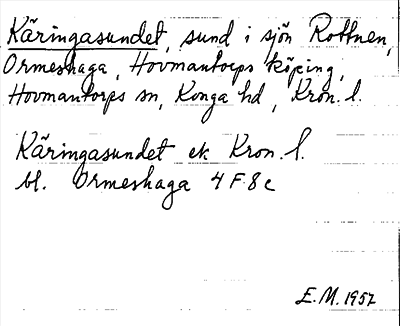 Käringasundet, sund i sjön Rottnen,
Ormeshaga, Hovmantorps köping,
Hovmantorps sn, Konga hd, Kron. l.
Käringasundet ek Kron. l.
bl. Ormeshaga 4 F 8 c
E.M. 1957